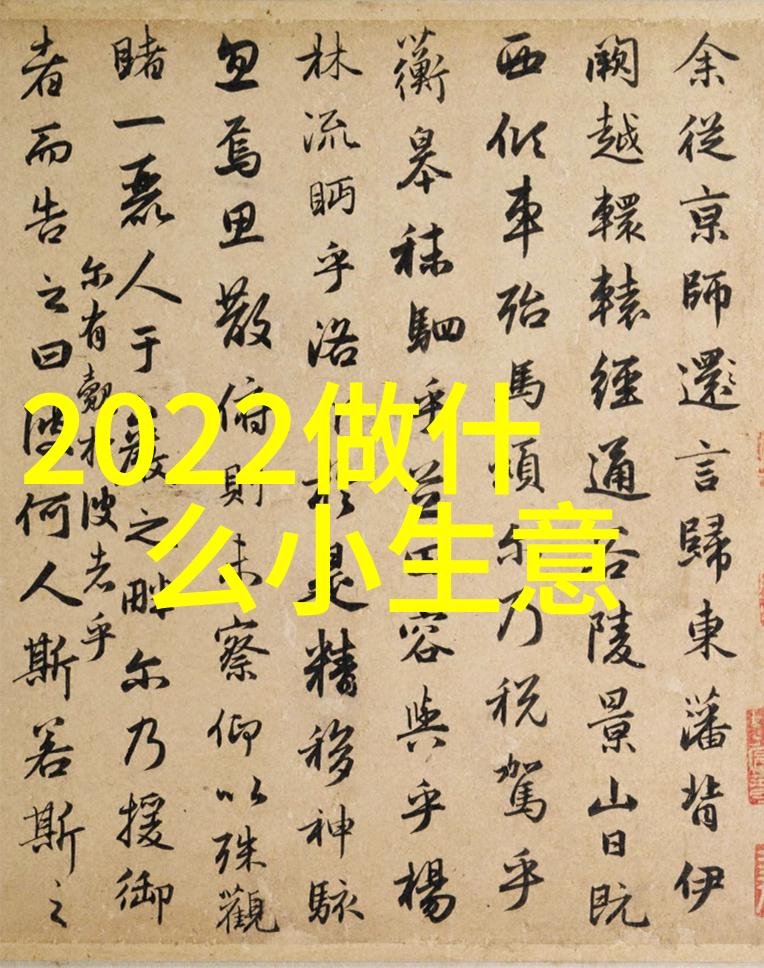 余從京師還言歸東藩背伊
闕越轘轅經通谷陵景山日既
西傾車殆馬煩尔乃税駕乎
蘅皋秣駟乎芝田容與乎楊
林流眄乎洛川於是精移神駭
忽焉思散俯則未察仰以殊觀
睹一麗人于巖之畔尔乃援御
者而告之曰
尔有覿於彼者乎
彼何人斯若斯之
2022做什
么小生意